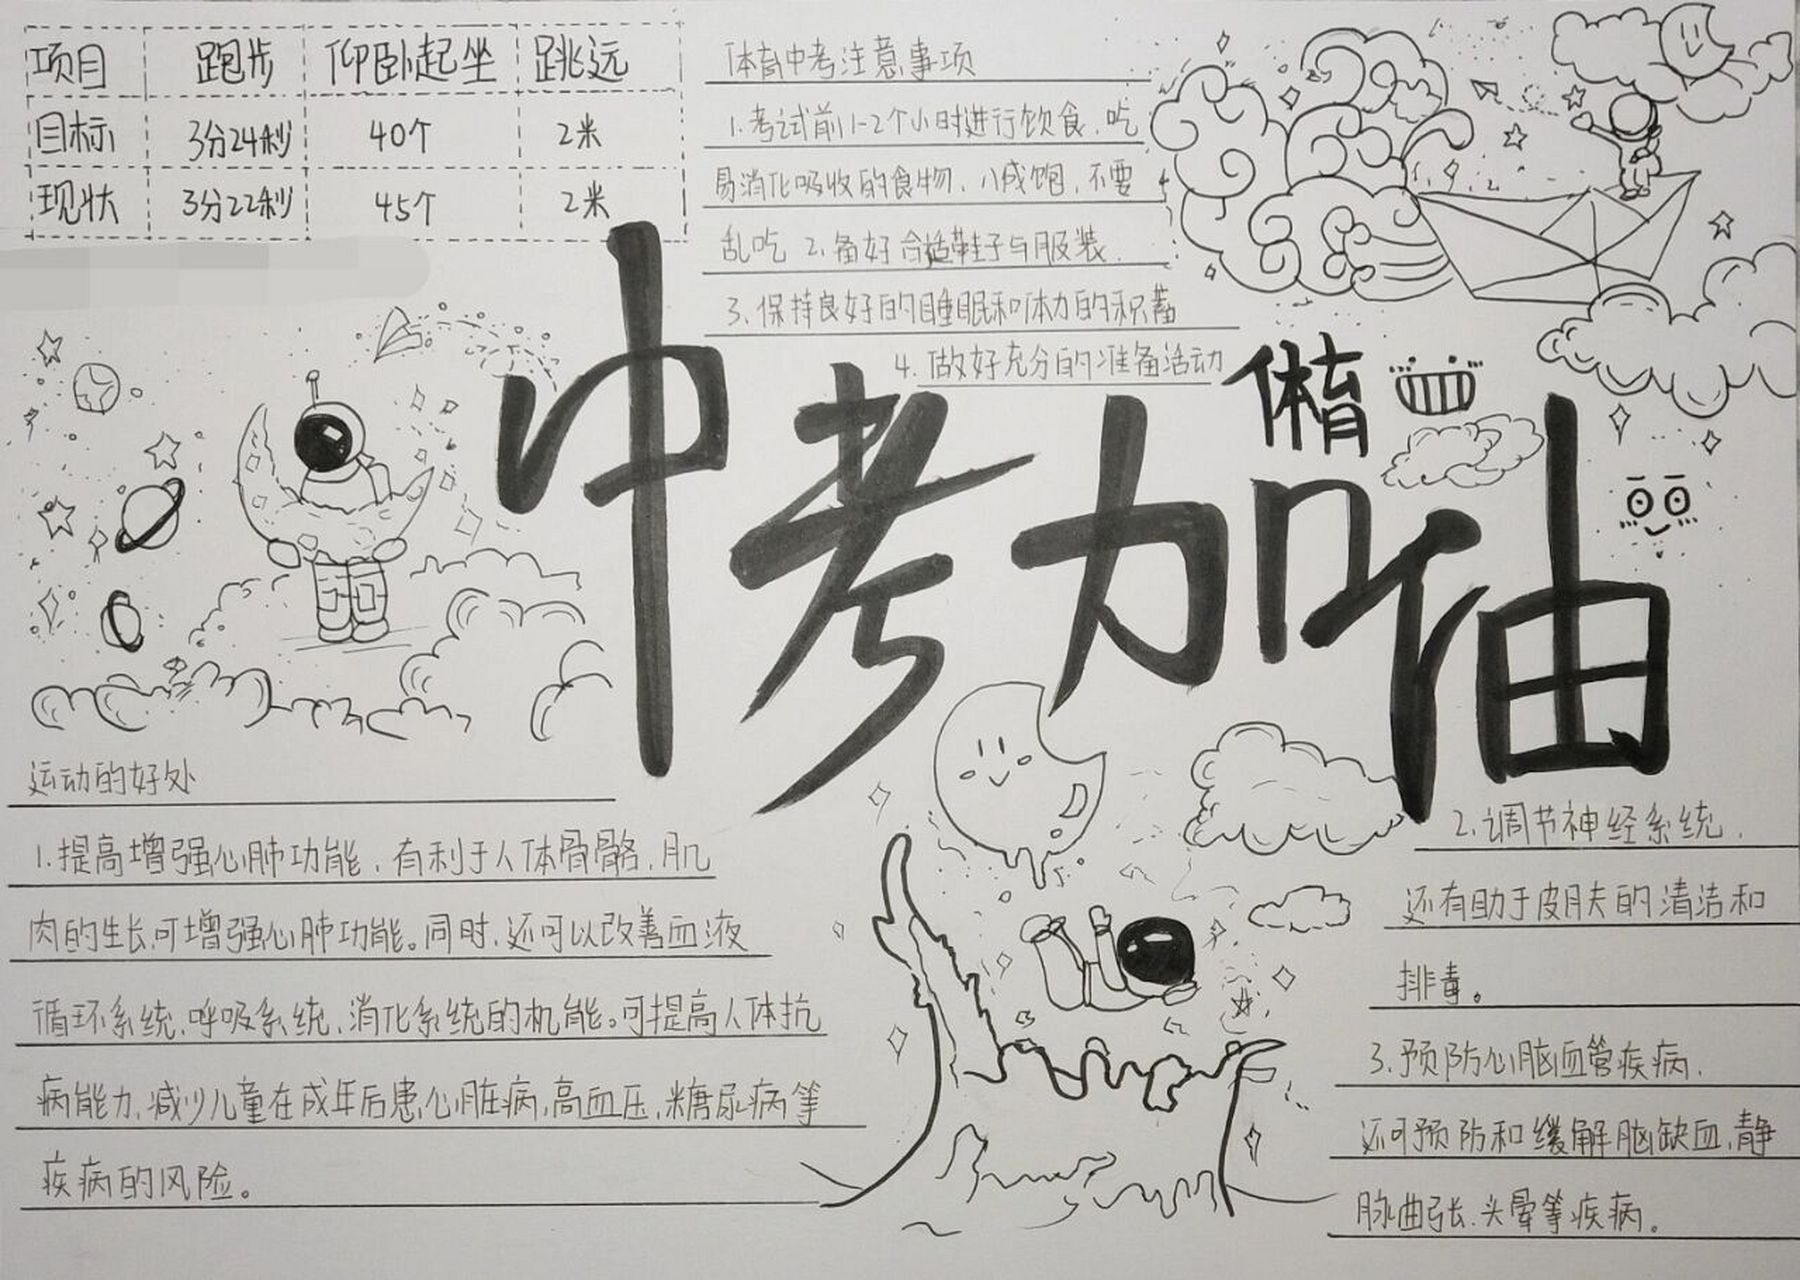 项目 跑步 仰卧起坐 跳远
目标 3分24秒 40个 2米
现状 3分22秒 45个 2米
体育中考注意事项
1.考试前1-2个小时进行饮食,吃
易消化吸收的食物、八成饱,不要
乱吃 2.备好合适鞋子与服装.
3.保持良好的睡眠和体力的积蓄
4.做好充分的准备活动
体育
中考加油
运动的好处
1.提高增强心肺功能,有利于人体骨骼,肌
肉的生长,可增强心肺功能。同时,还可以改善血液
循环系统,呼吸系统、消化系统的机能。可提高人体抗
病能力,减少儿童在成年后患心脏病,高血压,糖尿病等
疾病的风险。
2.调节神经系统,
还有助于皮肤的清洁和
排毒。
3.预防心脑血管疾病,
还可预防和缓解脑缺血,静
脉曲张、头晕等疾病。